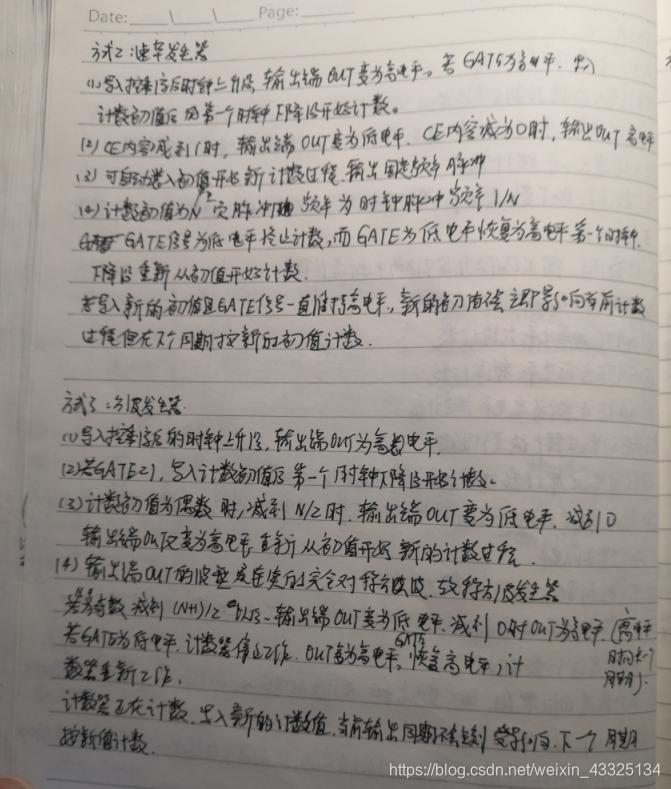 Date: Page:
方式2:速率发生器
(1)写入控制字后时钟上升沿,输出端OUT变为高电平。若GATE为高电平,写
计数初值后的第一个时钟下降沿开始计数。
(2)CE内容减到1时,输出端OUT变为低电平,CE内容减为0时,输出OUT高电平
(3)可自动装入初值开始新计数过程,输出固定频率脉冲
(4)计数初值为N 频率为时钟脉冲频率1/N
GATE信号为低电平终止计数,而GATE为低电平恢复为高电平第一个时钟
下降沿重新从初值开始计数.
若写入新的初值且GATE信号一直维持高电平,新的初值 立即影响当前计数
过程但在下个周期按新的初值计数.
方式3:方波发生器.
(1)写入控制字后的时钟上升沿,输出端OUT为高电平.
(2)若GATE=1,写入计数初值后第一个时钟下降沿开始计数。
(3)计数初值为偶数时,减到N/2时,输出端OUT变为低电平,减到0
输出端OUT变为高电平,重新从初值开始新的计数过程.
(4)输出端OUT的波型是连续的完全对称方波,故称方波发生器
若为奇数 减到(N+1)/2 以后,输出端OUT变为低电平,减到0时OUT为高电平(高电平
若GATE为低电平,计数器停止工作,OUT变为高电平,GATE恢复高电平,计 时间长一个
数器重新工作. 周期).
计数器正在计数,写入新的计数值,当前输出周期不会受到影响,下一个周期
按新值计数.
https://blog.csdn.net/weixin_43325134